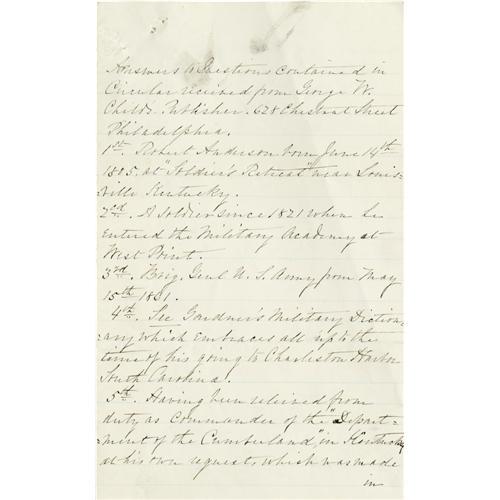 Answers to Questions contained in
Circular received from George W.
Childs. Publisher. 628 Chestnut Street
Philadelphia.
1st. Robert Anderson born June 14th
1805, at "Soldier's Retreat" near Louis-
-ville Kentucky.
2d. A Soldier since 1821 when he
entered the Military Academy at
West Point.
3rd. Brig. Genl U. S. Army from May
15th 1861.
4th. See Gardner's Military Diction-
-ary which embraces all up to the
time of his going to Charleston Harbor
South Carolina.
5th. Having been relieved from
duty as Commander of the "Depart-
-ment of the Cumberland," in Kentucky
at his own request, which was made
in